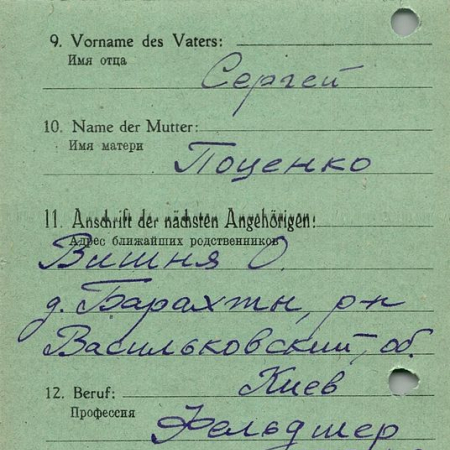 9. Vorname des Vaters:
Имя отца
Сергей
10. Name der Mutter:
Имя матери
Поценко
11. Anschrift der nächsten Angehörigen:
Адрес ближайших родственников
Вишня О.
д. Барахты, р-н
Васильковский, об.
Киев
12. Beruf:
Профессия
Фельдшер